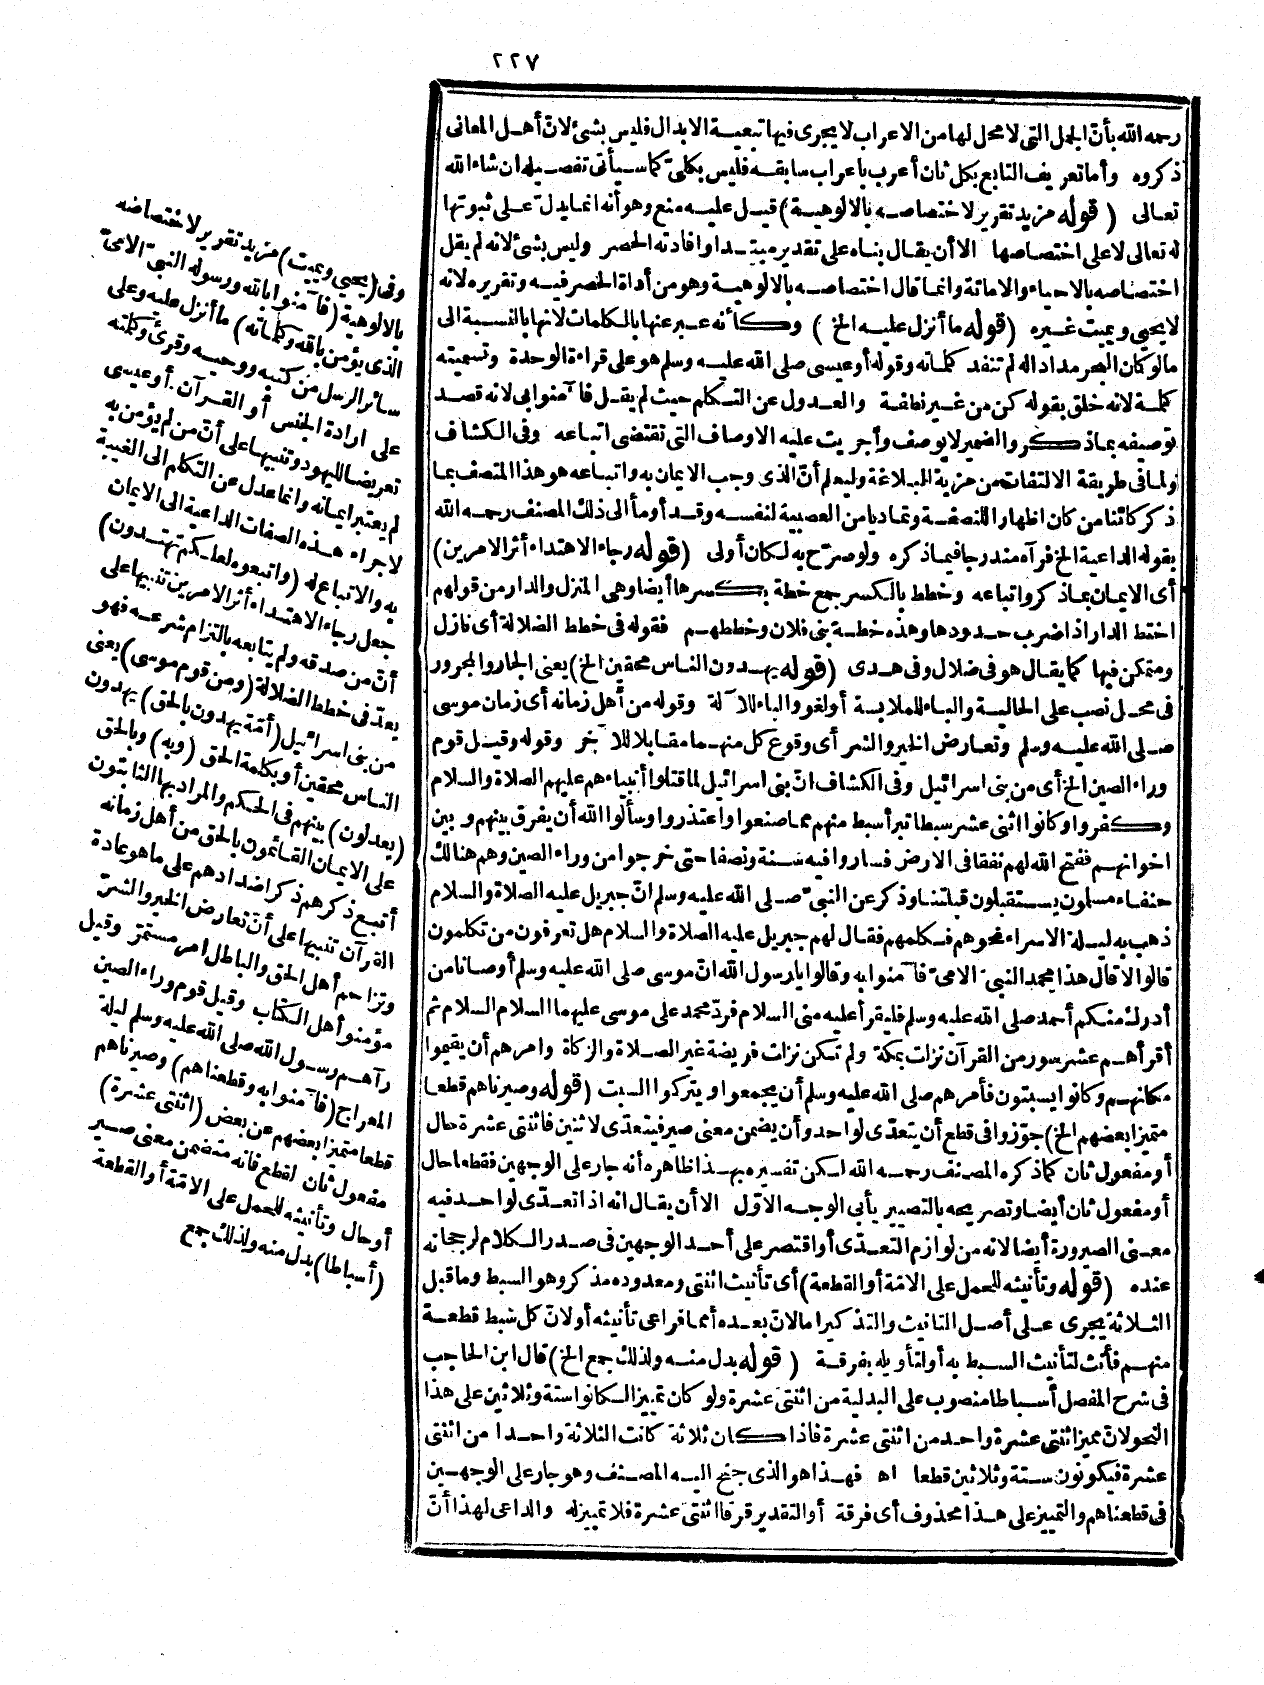 ٢٢٧
رحمه الله بأنّ الجمل التى لا محل لها من الاعراب لا يجرى فيها تبعية الابدال فليس بشئ لانّ أهل المعانى
ذكروه وأما تعريف التابع بكل ثان أعرب باعراب سابقه فليس بكلىّ كما سيأتى تفصيله ان شاء الله
تعالى (قوله مزيد تقرير لاختصاصه بالالوهية) قيل عليه منع وهو أنه انما يدل على ثبوتها
له تعالى لا على اختصاصها الا أن يقال بناء على تقدير مبتدا وافادته الحصر وليس بشئ لانه لم يقل
اختصاصه بالاحياء والاماتة وانما قال اختصاصه بالالوهية وهو من أداة الحصر فيه وتقريره لانه
لا يحيى ويميت غيره (قوله ما أنزل عليه الخ) وكأنه عبر عنها بالكلمات لانها بالنسبة الى
ما لو كان البحر مدادا له لم تنفد كلماته وقوله أو عيسى صلى الله عليه وسلم هو على قراءة الوحدة وتسميته
كلمة لانه خلق بقوله كن من غير نطفة والعدول عن التكلم حيث لم يقل فآمنوا بى لانه قصد
توصيفه بما ذكر والضمير لا يوصف وأجريت عليه الاوصاف التى تقتضى اتباعه وفى الكشاف
ولما فى طريقة الالتفات من مزية البلاغة وليعلم أنّ الذى وجب الايمان به واتباعه هو هذا المتصف بما
ذكر كائنا من كان اظهارا للنصفة وتماديا من العصبية لنفسه وقد أومأ الى ذلك المصنف رحمه الله
بقوله الداعية الخ فرآه مندرجا فيما ذكره ولو صرّح به لكان أولى (قوله رجاء الاهتداء أثر الامرين)
أى الايمان بما ذكر واتباعه وخطط بالكسر جمع خطة بكسرها أيضا وهى المنزل والدار من قولهم
اختط الدار اذا ضرب حدودها وهذه خطة بنى فلان وخططهم فقوله فى خطط الضلالة أى نازل
ومتمكن فيها كما يقال هو فى ضلال وفى هدى (قوله يهدون الناس محقين الخ) يعنى الجار والمجرور
فى محل نصب على الحالية والباء للملابسة أو لغو والباء للآلة وقوله من أهل زمانه أى زمان موسى
صلى الله عليه وسلم وتعارض الخير والشر أى وقوع كل منهما مقابلا للآخر وقوله وقيل قوم
وراء الصين الخ أى من بنى اسرائيل وفى الكشاف انّ بنى اسرائيل لما قتلوا أنبياءهم عليهم الصلاة والسلام
وكفروا وكانوا اثنى عشر سبطا تبرأ سبط منهم مما صنعوا واعتذروا وسألوا الله أن يفرق بينهم وبين
اخوانهم ففتح الله لهم نفقا فى الارض فساروا فيه سنة ونصفا حتى خرجوا من وراء الصين وهم هنالك
حنفاء مسلمون يستقبلون قبلتنا وذكر عن النبىّ صلى الله عليه وسلم انّ جبريل عليه الصلاة والسلام
ذهب به ليلة الاسراء نحوهم فكلمهم فقال لهم جبريل عليه الصلاة والسلام هل تعرفون من تكلمون
قالوا لا قال هذا محمد النبىّ الامىّ فآمنوا به وقالوا يا رسول الله انّ موسى صلى الله عليه وسلم أوصانا من
أدرك منكم أحمد صلى الله عليه وسلم فليقرأ عليه منى السلام فردّ محمد على موسى عليهما السلام السلام ثم
أقرأهم عشر سور من القرآن نزلت بمكة ولم تكن نزلت فريضة غير الصلاة والزكاة وامرهم أن يقيموا
مكانهم وكانوا يسبتون فأمرهم صلى الله عليه وسلم أن يجمعوا ويتركوا السبت (قوله وصيرناهم قطعا
متميزا بعضهم الخ) جوّزوا فى قطع أن يتعدّى لواحد وأن يضمن معنى صير فيتعدّى لاثنين فاثنتى عشرة حال
أو مفعول ثان كما ذكره المصنف رحمه الله لكن تفسيره بهذا ظاهره أنه جار على الوجهين فقطعا حال
أو مفعول ثان أيضا وتصريحه بالتصيير يأبى الوجه الاوّل الا أن يقال انه اذا تعدّى لواحد فيه
معنى الصيرورة أيضا لانه من لوازم التعدّى أو اقتصر على أحد الوجهين فى صدر الكلام لرجحانه
عنده (قوله وتأنيثه للحمل على الامّة أو القطعة) أى تأنيث اثنتى ومعدوده مذكر وهو السبط وما قبل
الثلاثة يجرى على أصل التانيث والتذكير امالانّ بعده أمما فراعى تأنيثه أو لان كل سبط قطعة
منهم فأنث لتأنيث السبط به أو لتأويله بفرقة (قوله بدل منه ولذلك جمع الخ) قال ابن الحاجب
فى شرح المفصل أسباطا منصوب على البدلية من اثنتى عشرة ولو كان تمييزا لكانوا ستة وثلاثين على هذا
النحو لانّ مميز اثنتى عشرة واحد من اثنتى عشرة فاذا كان ثلاثة كانت الثلاثة واحدا من اثنتى
عشرة فيكونون ستة وثلاثين قطعا اه فهذا هو الذى جنح اليه المصنف وهو جار على الوجهين
فى قطعناهم والتمييز على هذا محذوف أى فرقة أو التقدير فرقا اثنتى عشرة فلا تمييز له والداعى لهذا أنّ
وفى (يحيى ويميت) مزيد تقرير لاختصاصه
بالالوهية (فآمنوا بالله ورسوله النبىّ الامىّ
الذى يؤمن بالله وكلماته) ما أنزل عليه وعلى
سائر الرسل من كتبه ووحيه وقرئ وكلمته
على ارادة الجنس أو القرآن أو عيسى
تعريضا لليهود وتنبيها على أنّ من لم يؤمن به
لم يعتبر ايمانه وانما عدل عن التكلم الى الغيبة
لاجراء هذه الصفات الداعية الى الايمان
به والاتباع له (واتبعوه لعلكم تهتدون)
جعل رجاء الاهتداء أثر الامرين تنبيها على
أنّ من صدقه ولم يتابعه بالتزام شرعه فهو
يعدّ فى خطط الضلالة (ومن قوم موسى) يعنى
من بنى اسرائيل (أمّة يهدون بالحق) يهدون
الناس محقين أو بكلمة الحق (وبه) وبالحق
(يعدلون) بينهم فى الحكم والمراد بها الثابتون
على الايمان القائمون بالحق من أهل زمانه
أتبع ذكرهم ذكر اضدادهم على ما هو عادة
القرآن تنبيها على أنّ تعارض الخير والشرّ
وتزاحم أهل الحق والباطل امر مستمرّ وقيل
مؤمنو أهل الكتاب وقيل قوم وراء الصين
رآهم رسول الله صلى الله عليه وسلم ليلة
المعراج (فآمنوا به وقطعناهم) وصيرناهم
قطعا متميزا بعضهم عن بعض (اثنتى عشرة)
مفعول ثان لقطع فانه متضمن معنى صير
أو حال وتأنيثه للحمل على الامّة أو القطعة
(أسباطا) بدل منه ولذلك جمع